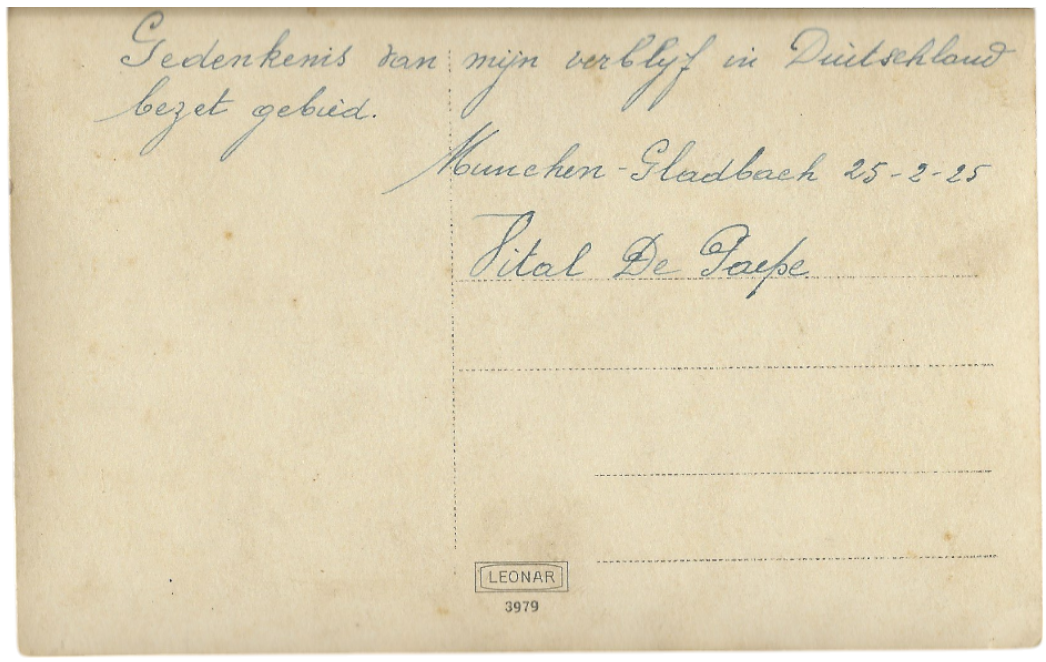 Gedenkenis van mijn verblijf in Duitschland
bezet gebied.
Munchen-Gladbach 25-2-25
Vital De Paepe
LEONAR
3979